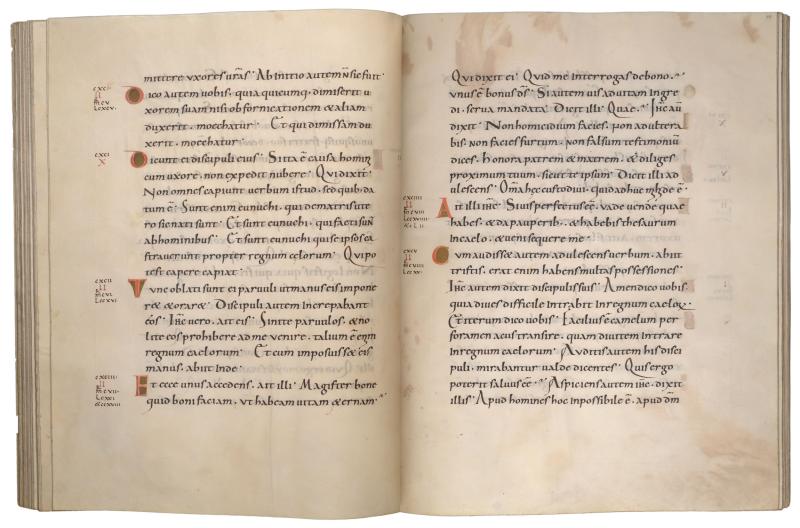 mittere uxores uras. Ab initio autem n sic fuit
Dico autem vobis. quia quicumq. dimiserit u
xorem suam nisi ob fornicationem & aliam
duxerit. moechatur. Et qui dimissam du
xerit. moechatur
Dicunt ei discipuli eius. Si ita ē causa homini
cum uxore. non expedit nubere. Qui dixit.
Non omnes capiunt uerbum istud. sed quib. da
tum ē. Sunt enim eunuchi. qui de matris ute
ro sic nati sunt. Et sunt eunuchi. qui facti sunt
ab hominibus. Et sunt eunuchi qui se ipsos ca
strauerunt propter regnum celorum. Qui po
test capere capiat.
Tunc oblati sunt ei paruuli ut manus eis impone
r& & orar&. Discipuli autem increpabant
eos. Ihc vero. ait eis. Sinite paruulos. & no
lite eos prohibere ad me uenire. talium ē enim
regnum caelorum. Et cum imposuiss& eis
manus. abiit inde.
Et ecce unus accedens. ait illi. Magister bone
quid boni faciam. ut habeam uitam &ernam.
Qui dixit ei. Quid me interrogas de bono.
Unus ē bonus ds. Si autem uis ad uitam ingre
di. serua mandata. Dicit illi. Quae. Ihc aū
dixit. Non homicidium facies. non adultera
bis. non facies furtum. non falsum testimoniū
dices. Honora patrem & matrem. & diliges
proximum tuum. sicut te ipsum. Dicit illi ad
ulescens. Omnia hęc custodiui. quid adhuc mihi deē.
Ait illi ihc. Si uis perfectus eē. uade uende quae
habes. & da pauperib. & habebis thesaurum
in caelo. & ueni sequere me.
Cum audiss& autem adulescens uerbum. abiit
tristis. erat enim habens multas possessiones.
Ihc autem dixit discipulis suis. Amen dico uobis.
quia diues difficile intrabit in regnum caelor.
Et iterum dico uobis. Facilius ē camelum per
foramen acus transire. quam diuitem intrare
in regnum caelorum. Auditis autem his disci
puli. mirabantur ualde dicentes. Quis ergo
poterit saluus eē. Aspiciens autem ihc. dixit
illis. Apud homines hoc inpossibile ē. apud dm